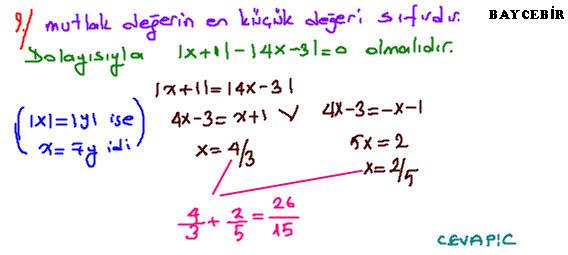 BAYCEBİR
9/ mutlak değerin en küçük değeri sıfırdır.
Dolayısıyla |x+1|-|4x-3|=0 olmalıdır.
|x+1|=|4x-3|
(|x|=|y| ise
x=∓y idi)
4x-3=x+1 ∨ 4x-3=-x-1
x=4/3 5x=2
x=2/5
4/3+2/5=26/15
CEVAP|C